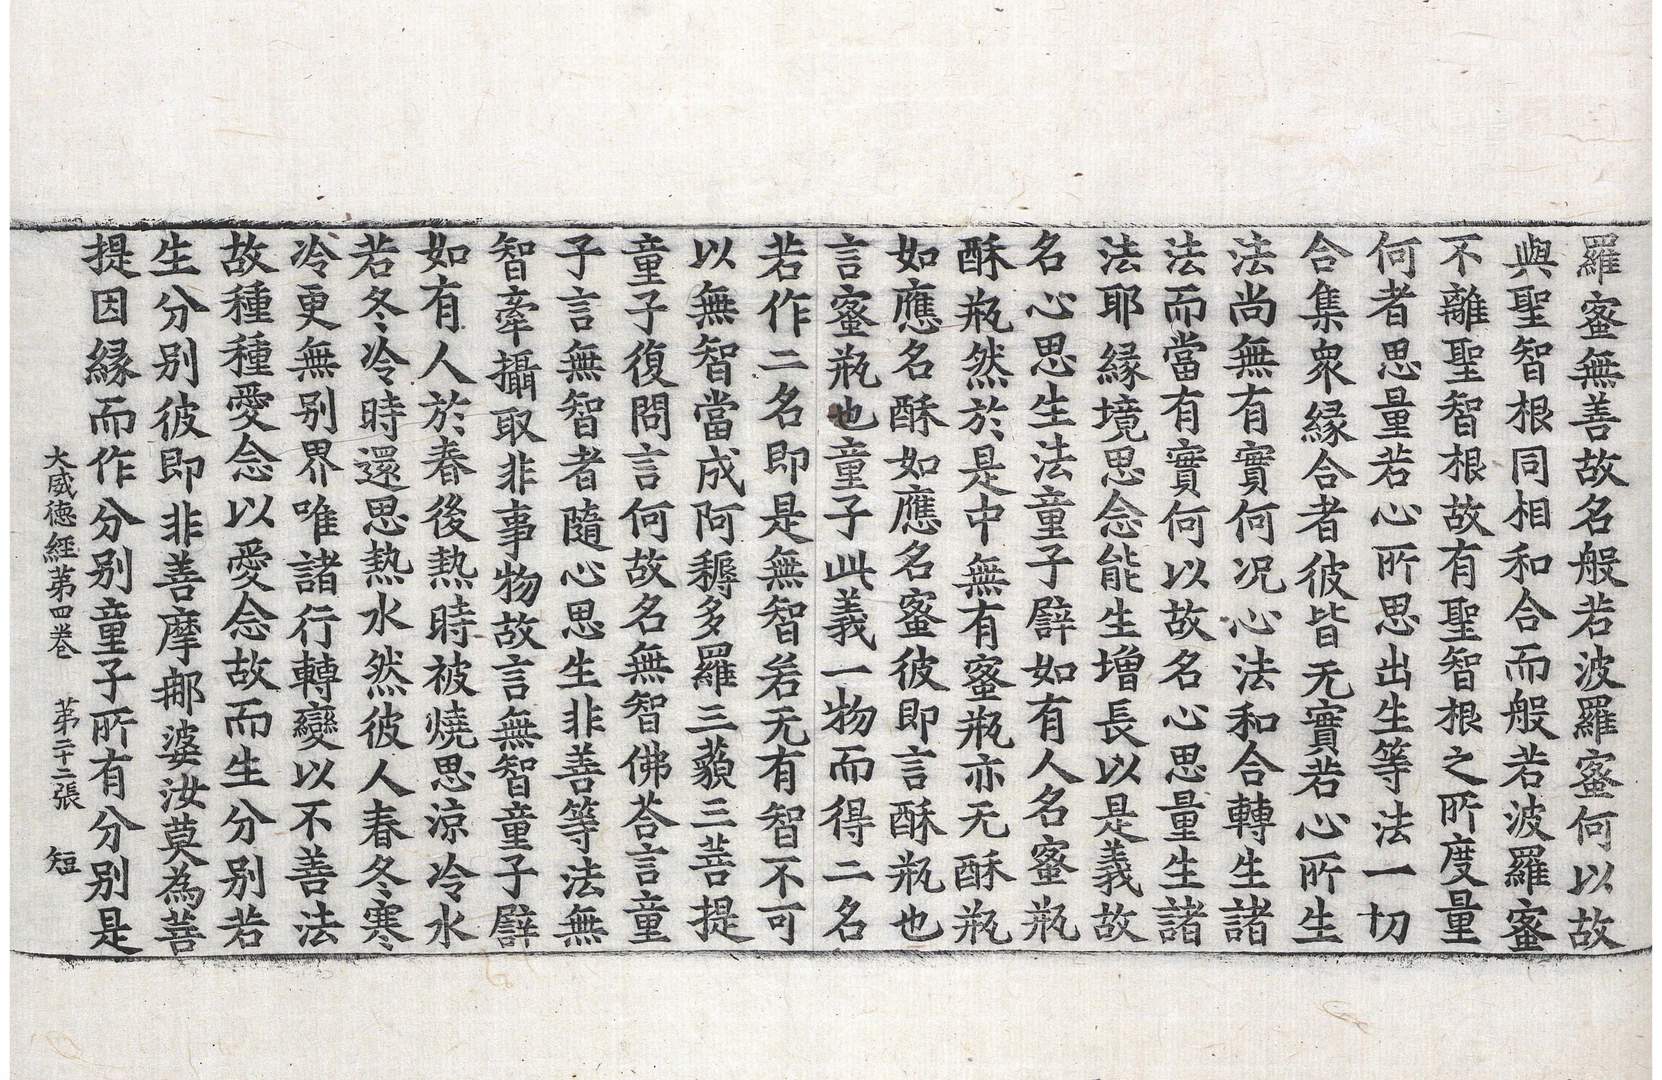 羅蜜無善故名般若波羅蜜何以故
與聖智根同相和合而般若波羅蜜
不離聖智根故有聖智根之所度量
何者思量若心所思出生等法一切
合集衆緣合者彼皆无實若心所生
法尚無有實何况心法和合轉生諸
法而當有實何以故名心思量生諸
法耶緣境思念能生增長以是義故
名心思生法童子譬如有人名蜜瓶
酥瓶然於是中無有蜜瓶亦无酥瓶
如應名酥如應名蜜彼即言酥瓶也
言蜜瓶也童子此義一物而得二名
若作二名即是無智若无有智不可
以無智當成阿耨多羅三藐三菩提
童子復問言何故名無智佛荅言童
子言無智者隨心思生非善等法無
智牽攝取非事物故言無智童子譬
如有人於春後熱時被燒思涼冷水
若冬冷時還思熱水然彼人春冬寒
冷更無別界唯諸行轉變以不善法
故種種愛念以愛念故而生分別若
生分別彼即非善摩那婆汝莫為善
提因緣而作分別童子所有分別是
大威德經第四卷　第二十二張　短